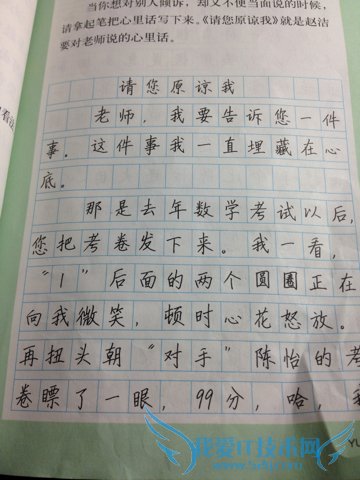 当你想对别人倾诉，却又不便当面说的时候，
请拿起笔把心里话写下来。《请您原谅我》就是赵洁
要对老师说的心里话。
请您原谅我
老师，我要告诉您一件
事。这件事我一直埋藏在心
底。
那是去年数学考试以后，
您把考卷发下来。我一看，
“1”后面的两个圆圈正在
向我微笑，顿时心花怒放。
再扭头朝“对手”陈怡的考
卷瞟了一眼，99分，哈，我
我爱IT技术网
YU